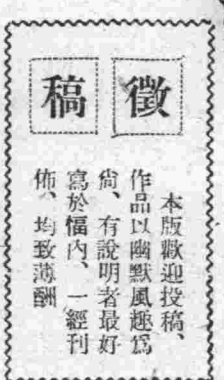 徵稿
本版歡迎投稿、
作品以幽默風趣爲
尙、有說明者最好
寫於幅內、一經刊
佈、均致薄酬